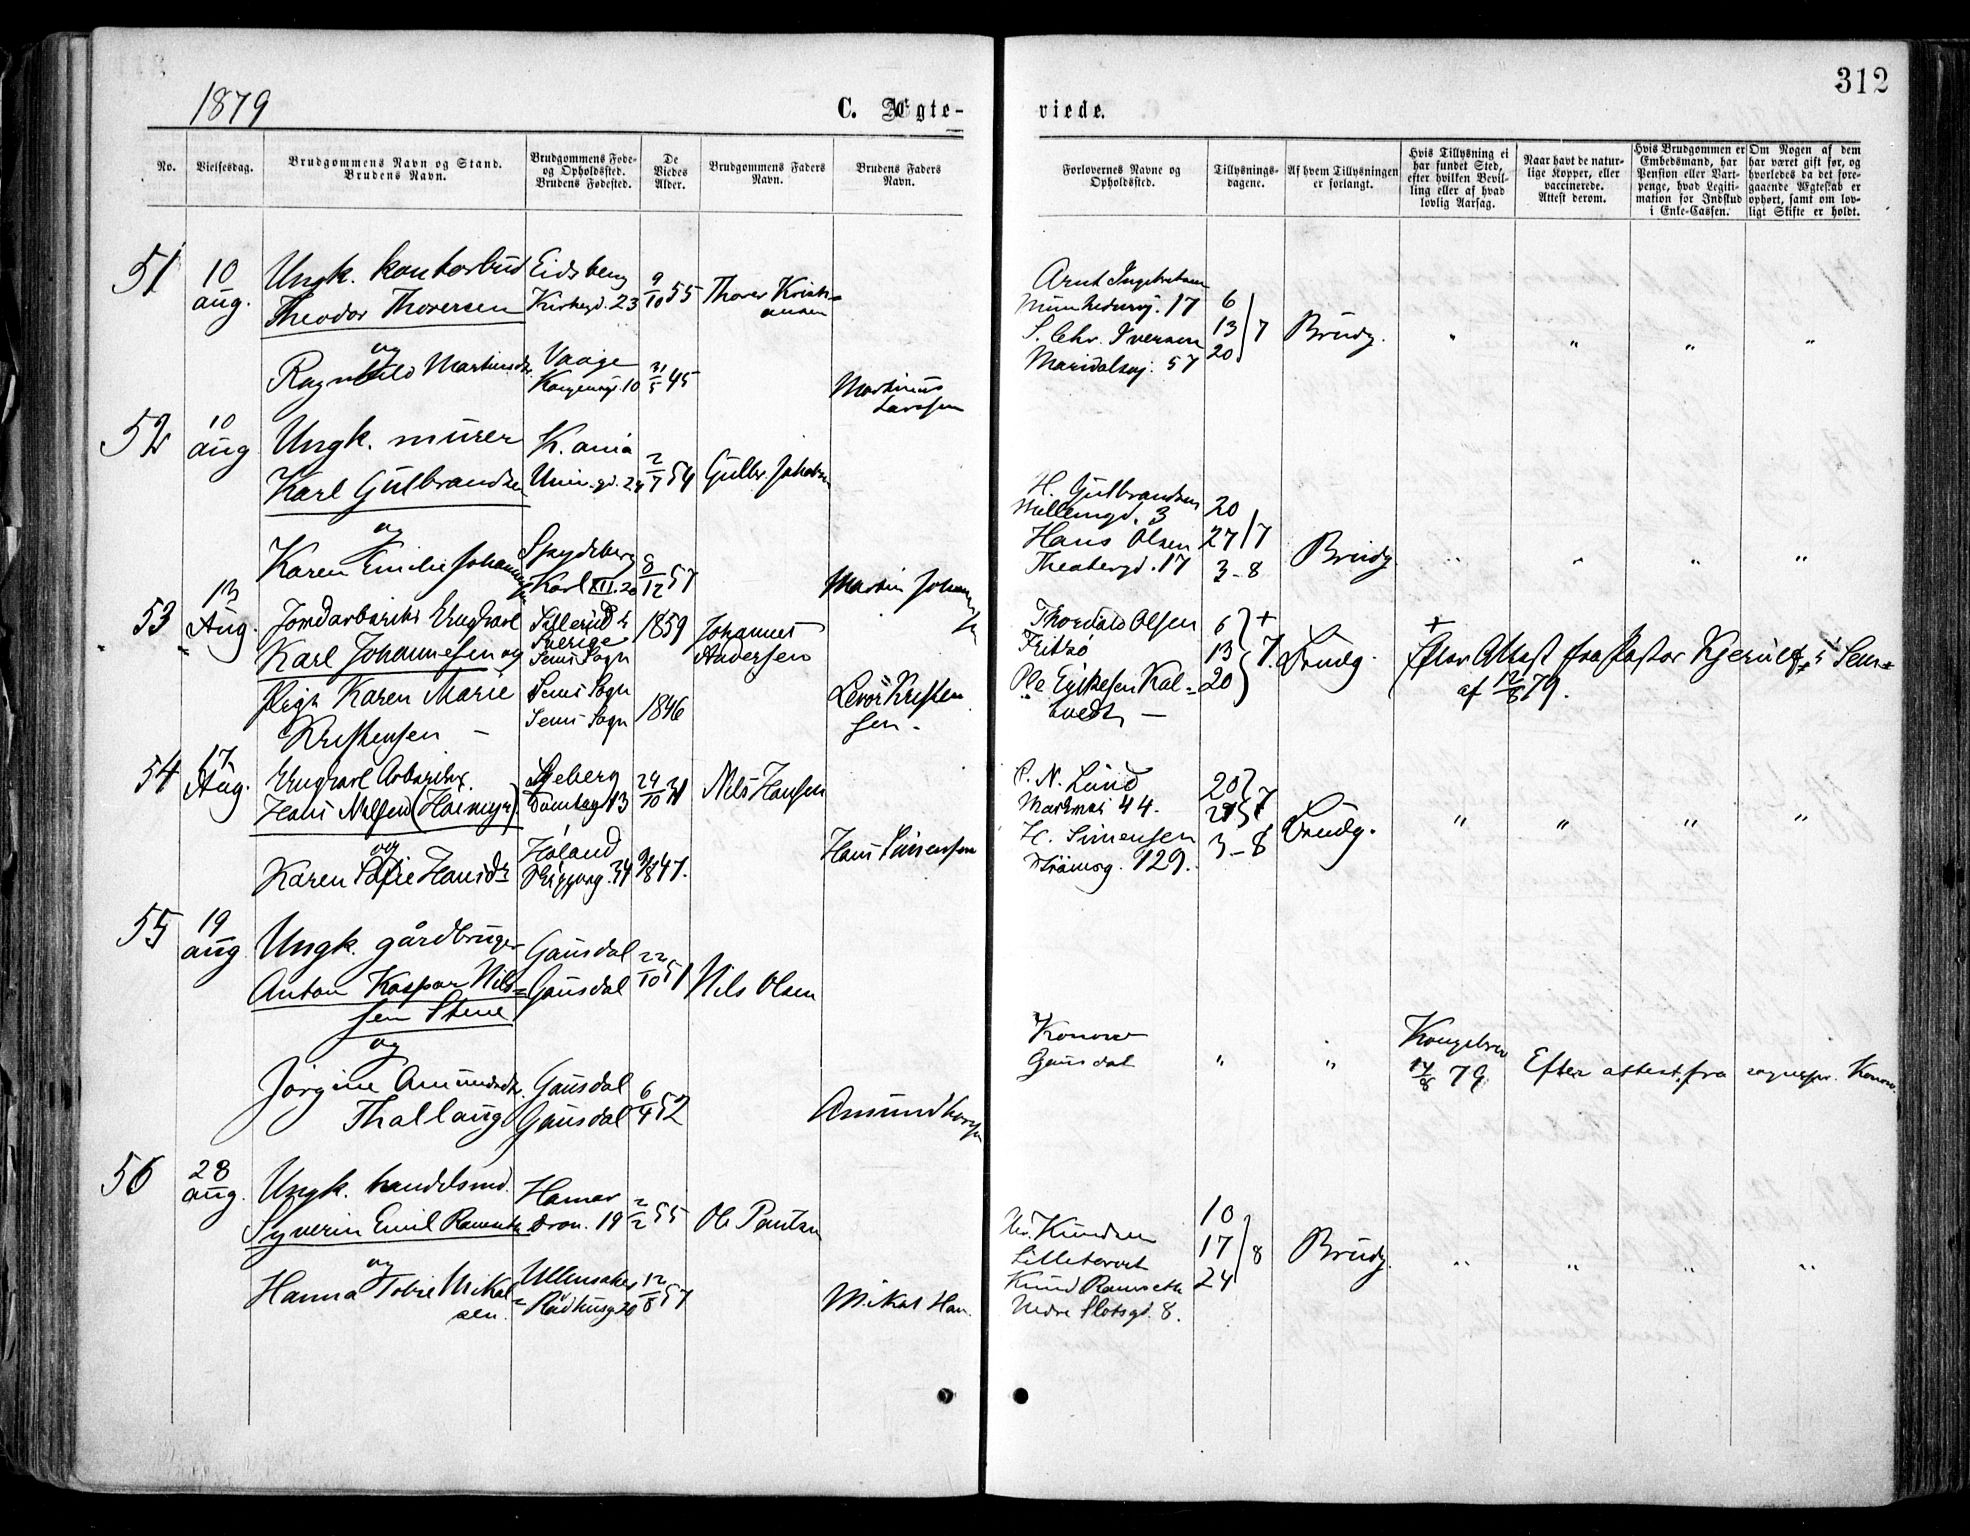 312
1879
C. Ægte-
viede.
No.
Vielsesdag.
Brudgommens Navn og Stand.
Brudens Navn.
Brudgommens Føde-
og Opholdssted.
Brudens Fødested.
De
Viedes
Alder.
Brudgommens Faders
Navn.
Brudens Faders
Navn.
Forlovernes Navne og
Opholdsted.
Tillysnings-
dagene.
Af hvem Tillysningen
er forlangt.
Hvis Tillysning ei
har fundet Sted,
efter hvilken Bevil-
ling eller af hvad
lovlig Aarsag.
Naar havt de natur-
lige Kopper, eller
vaccinerede.
Attest derom.
Hvis Brudgommen er
Embedsmand, har
Pension eller Vart-
penge, hvad Legiti-
mation for Indskud
i Enke-Cassen.
Om Nogen af dem
har været gift før, og
hvorledes da det fore-
gaaende Ægteskab er
ophørt, samt om lov-
ligt Skifte er holdt.
51
10 aug.
Ungk. kontorbud
Theodor Thoresen
og
Ragnhild Martinsdr.
Eidsberg
Kirkegd. 23
Vaage
10
9/10 55
31/5 45
Thorer Kristi-
ansen
Martinus
Larssen
Arnt Ingebretsen
17
S. Chr. Iversen
Maridalsvj. 57
6
13 } 7
20
Brudg.
" " " "
52
10 aug
Ungk. murer
Karl Gulbrandsen
og
Karen Emilie Johannesen
K.ania
Univ.gd. 24
Spydeberg
Karl XII. 20
2/7 54
8/12 57
Gulbr. Jakobsen
Martin Johannesen
H. Gulbrandsen
Møllergd. 3
Hans Olsen
Theatergd. 17
20
27/7
3-8
Brudg.
" " " "
53
13 Aug.
Jordarbeider Ungkarl
Karl Johannesen og
Pige Karen Marie
Kristensen
Sillerud i
Sverige
Sems Sogn
Sems Sogn
Sems Sogn
1859
1846
Johannes
Andersen
Kristen
sen
Thorvald Olsen
Fritzø
Ole
6 } +
13 } 7.
20
Brudg.
+
Efter Attest fra Pastor Kjerulf i Sem
af 12/8 79.
54
17. Aug.
Ungkarl Arbeider
Hans Nilsen (Holmejr)
og
Karen Sofie Hansdr
Tomteg 13
Høland
24/10
9/8 47.
Nils Hansen
Hans Simensen
P. N. Lund
44.
H. Simensen
Strømsg. 129.
20 } 7
27
3-8
Brudg.
" " " "
55
19 aug
Ungk. gårdbruger
Anton Kaspar Nils-
sen Stene
og
Jørgine Amundsdr.
Thallaug
Gausdal
Gausdal
Gausdal
Gausdal
22/10 51
6/4 52
Nils Olsen
Konow
Gausdal
" "
Kongebrev
14/8 79
Efter attest fra sognepr. Konow
56
28 aug.
Ungk. handelsmd.
Syverin Emil Ramseth
og
Hanna Tobie Mikal-
sen.
Hamar
Dron. 19
Ullensaker
Rådhusg. 20
2/2 55
12/8 57
Ole Paulsen
Mikal Han.
Knudsen
Lilletorvet
Knud Ramseth
Nedre Slotsgd. 8.
10
17 } 8
24
Brudg.
" " " "